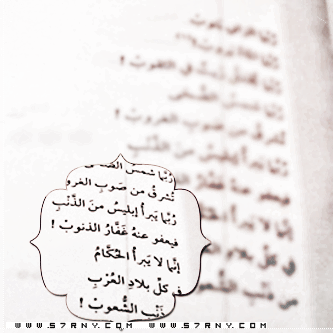 رُبّما شمسُ الضُّحى
تُشرقُ من صَوبِ الغروبْ !
رُبّما يَبرأُ إبليسُ منَ الذَّنْبِ
فيعفو عنهُ غَفّارُ الذنوبْ !
إنّما لا يَبرأُ الحُكّامُ
في كلِّ بلادِ العُرْبِ
من ذَنْبِ الشُّعوبْ !
WWW.S7RNY.COM WWW.S7RNY.COM